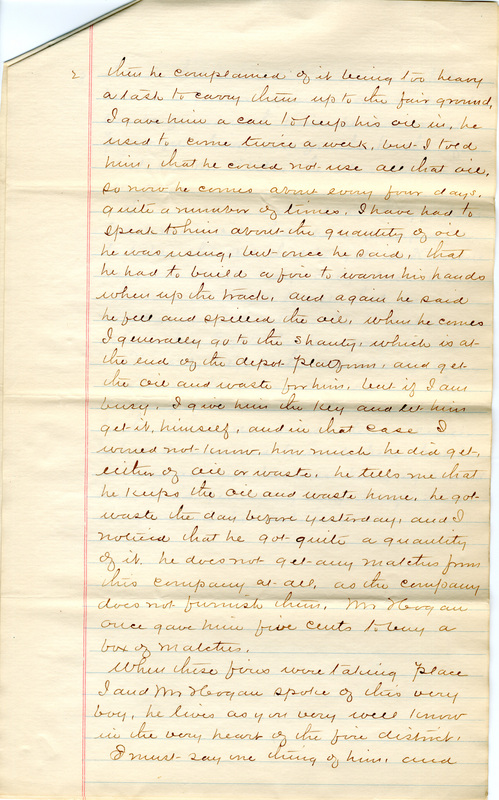 2
then he complained of it being too heavy
a task to carry them up to the fair ground,
I gave him a can to keep his oil in, he
used to come twice a week, but I told
him, that he could not use all that oil,
so now he comes about every four days.
quite a number of times, I have had to
speak to him about the quantity of oil
he was using, but once he said, that
he had to build a fire to warm his hands
when up the track, and again he said
he fell and spilled the oil, when he comes
I generally go to the shanty, which is at
the end of the depot platform, and get
the oil and waste for him, but if I am
busy, I give him the key and let him
get it, himself, and in that case I
would not know, how much he did get,
either of oil or waste, he tells me that
he keeps the oil and waste home, he got
waste the day before yesterday, and I
noticed that he got quite a quantity
of it. he does not get any matches from
this company at all, as the company
does not furnish them, Mr Hogan
once gave him five cents to buy a
box of matches.
When these fires were taking place
I and Mr Hogan spoke of this very
boy, he lives as you very well know
in the very heart of the fire district.
I must say one thing of him, and